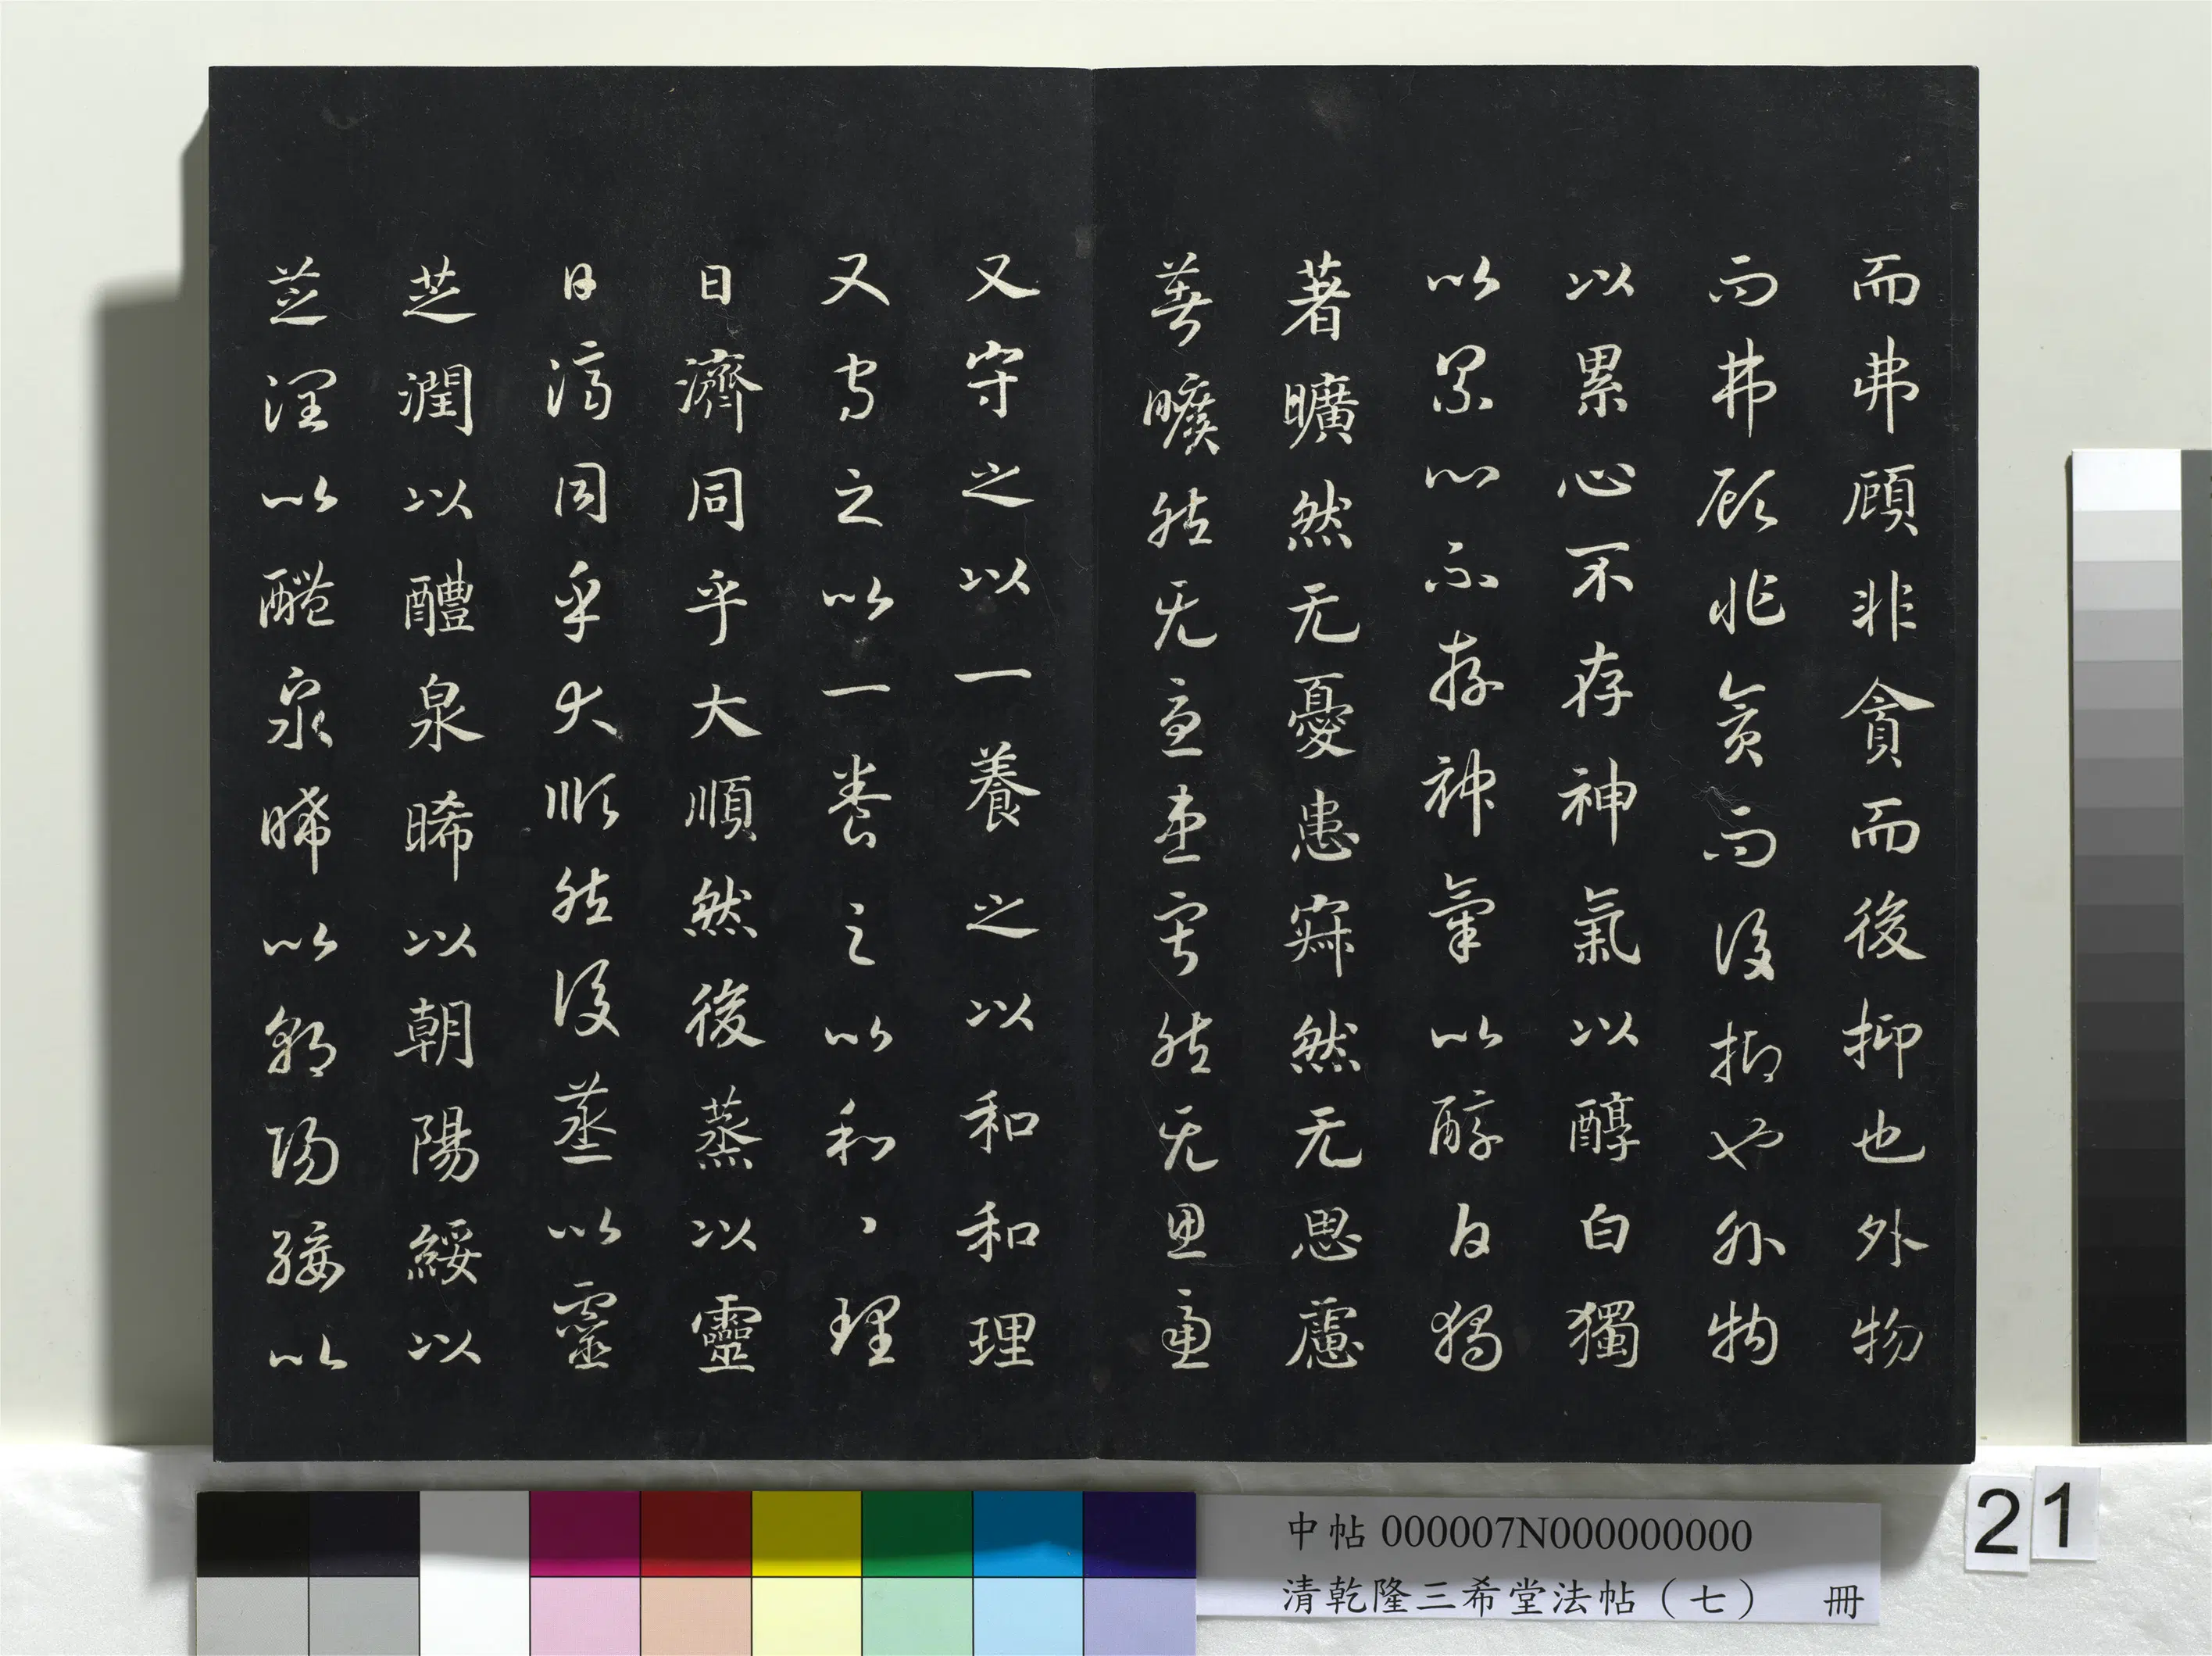 而弗顧非貪而後抑也外物
而弗顧非貪而後抑也外物
以累心不存神氣以醇白獨
以累心不存神氣以醇白獨
著曠然无憂患寂然无思慮
著曠然无憂患寂然无思慮
又守之以一養之以和和理
又守之以一養之以和〻理
日濟同乎大順然後蒸以靈
日濟同乎大順然後蒸以靈
芝潤以醴泉晞以朝陽綏以
芝潤以醴泉晞以朝陽綏以
中帖 000007N000000000
清乾隆三希堂法帖（七） 冊
21